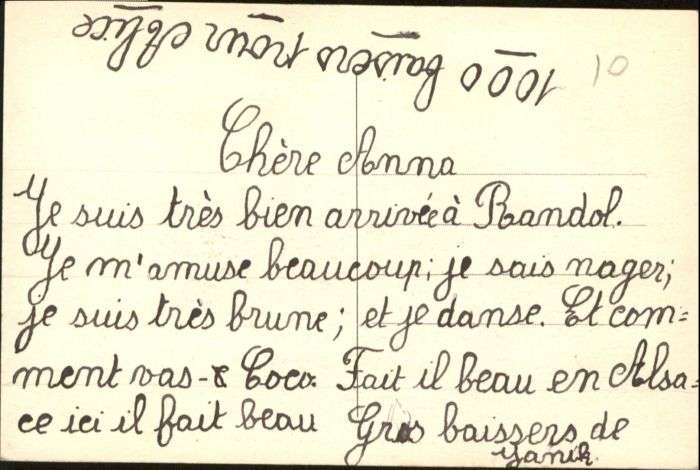 1000 baisers pour Alice
10
Chère Anna
Je suis très bien arrivée à Randol.
Je m'amuse beaucoup; je sais nager;
je suis très brune; et je danse. Et com=
ment vas-t Coco. Fait il beau en Alsa=
ce ici il fait beau Gros baissers de
Yanik.